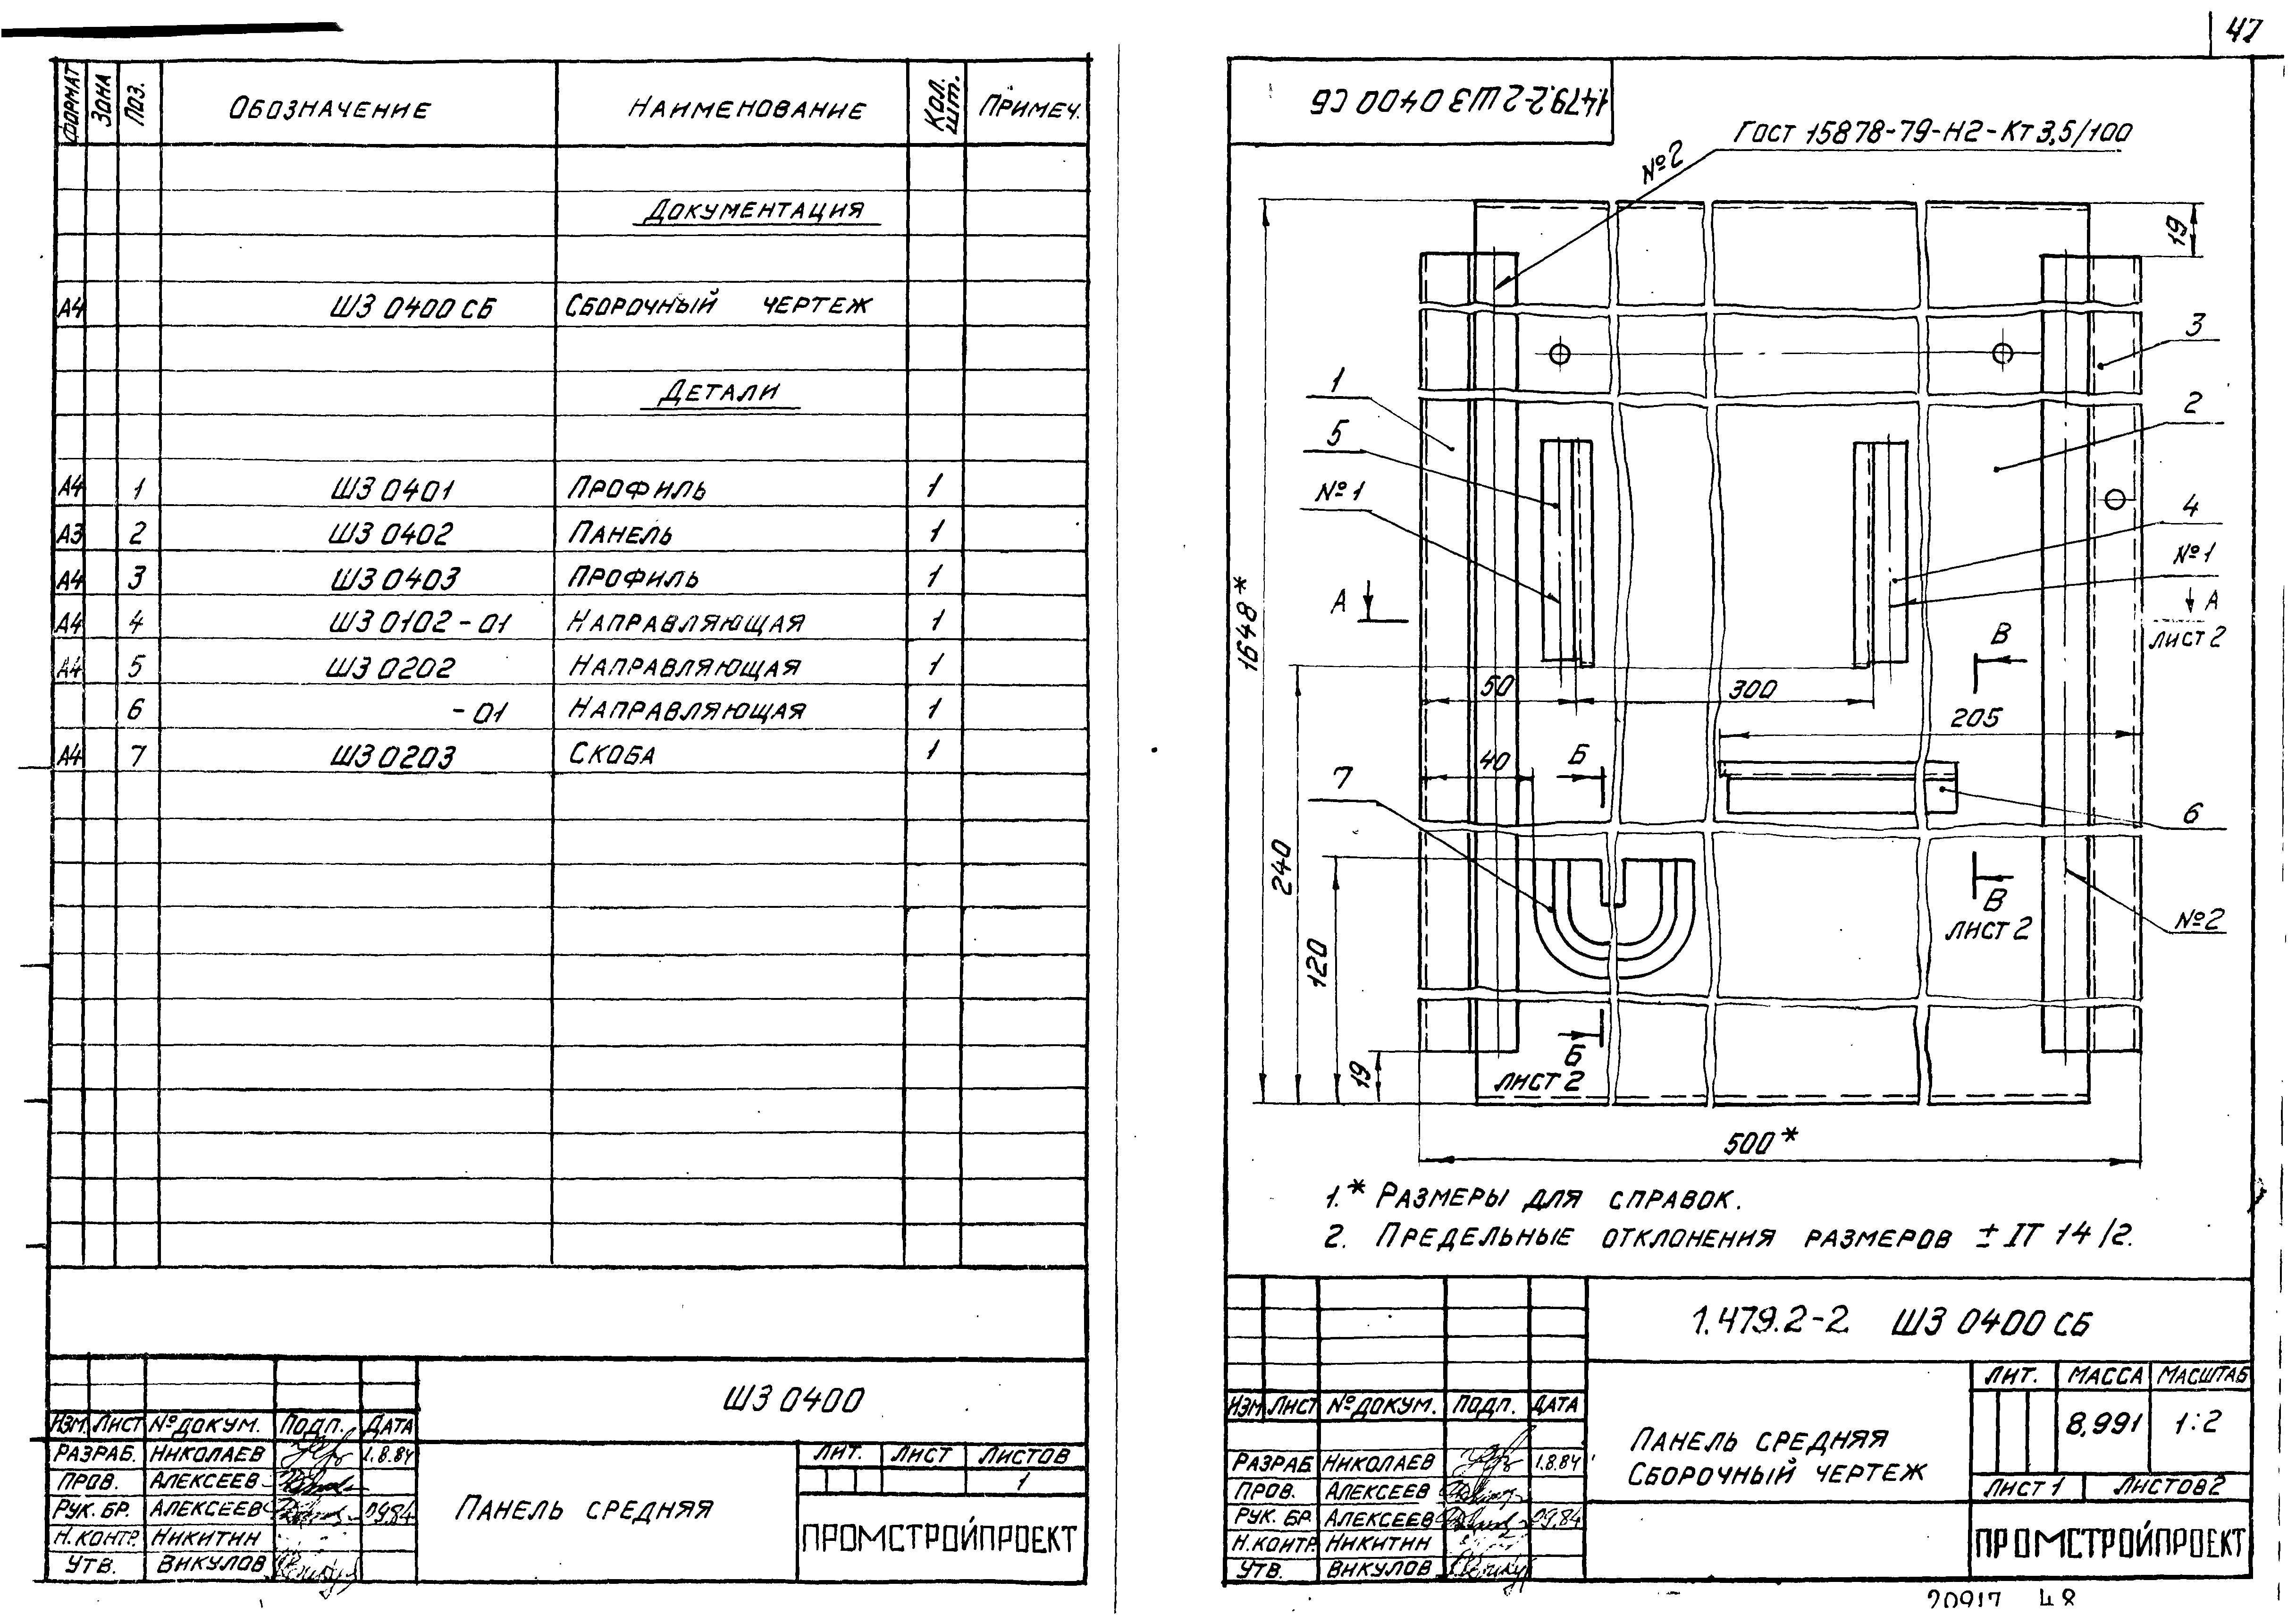 47
ФОРМАТ ЗОНА ПОЗ. ОБОЗНАЧЕНИЕ НАИМЕНОВАНИЕ КОЛ. ШТ. ПРИМЕЧ.
ДОКУМЕНТАЦИЯ
А4 ШЗ 0400 СБ СБОРОЧНЫЙ ЧЕРТЕЖ
ДЕТАЛИ
А4 1 ШЗ 0401 ПРОФИЛЬ 1
А3 2 ШЗ 0402 ПАНЕЛЬ 1
А4 3 ШЗ 0403 ПРОФИЛЬ 1
А4 4 ШЗ 0102-01 НАПРАВЛЯЮЩАЯ 1
А4 5 ШЗ 0202 НАПРАВЛЯЮЩАЯ 1
6 -01 НАПРАВЛЯЮЩАЯ 1
А4 7 ШЗ 0203 СКОБА 1
ШЗ 0400
ИЗМ. ЛИСТ № ДОКУМ. ПОДП. ДАТА
РАЗРАБ. НИКОЛАЕВ 1.8.84
ПРОВ. АЛЕКСЕЕВ
РУК. БР. АЛЕКСЕЕВ 09.84
Н.КОНТР. НИКИТИН
УТВ. ВИКУЛОВ
ПАНЕЛЬ СРЕДНЯЯ
ЛИТ. ЛИСТ ЛИСТОВ
1
ПРОМСТРОЙПРОЕКТ
1.479.2-2 ШЗ 0400 СБ
ГОСТ 15878-79-Н2-Кт 3,5/100
№2
19
3
1
2
5
№1
4
№1
А
А
ЛИСТ 2
1648*
В
50
300
205
40
Б
7
6
240
В
ЛИСТ 2
№2
120
Б
ЛИСТ 2
19
500*
1.* РАЗМЕРЫ ДЛЯ СПРАВОК.
2. ПРЕДЕЛЬНЫЕ ОТКЛОНЕНИЯ РАЗМЕРОВ ± IT 14/2.
1.479.2-2 ШЗ 0400 СБ
ИЗМ. ЛИСТ № ДОКУМ. ПОДП. ДАТА
РАЗРАБ. НИКОЛАЕВ 1.8.84
ПРОВ. АЛЕКСЕЕВ
РУК. БР. АЛЕКСЕЕВ 09.84
Н.КОНТР. НИКИТИН
УТВ. ВИКУЛОВ
ПАНЕЛЬ СРЕДНЯЯ
СБОРОЧНЫЙ ЧЕРТЕЖ
ЛИТ. МАССА МАСШТАБ
8,991 1:2
ЛИСТ 1 ЛИСТОВ 2
ПРОМСТРОЙПРОЕКТ
20917 48